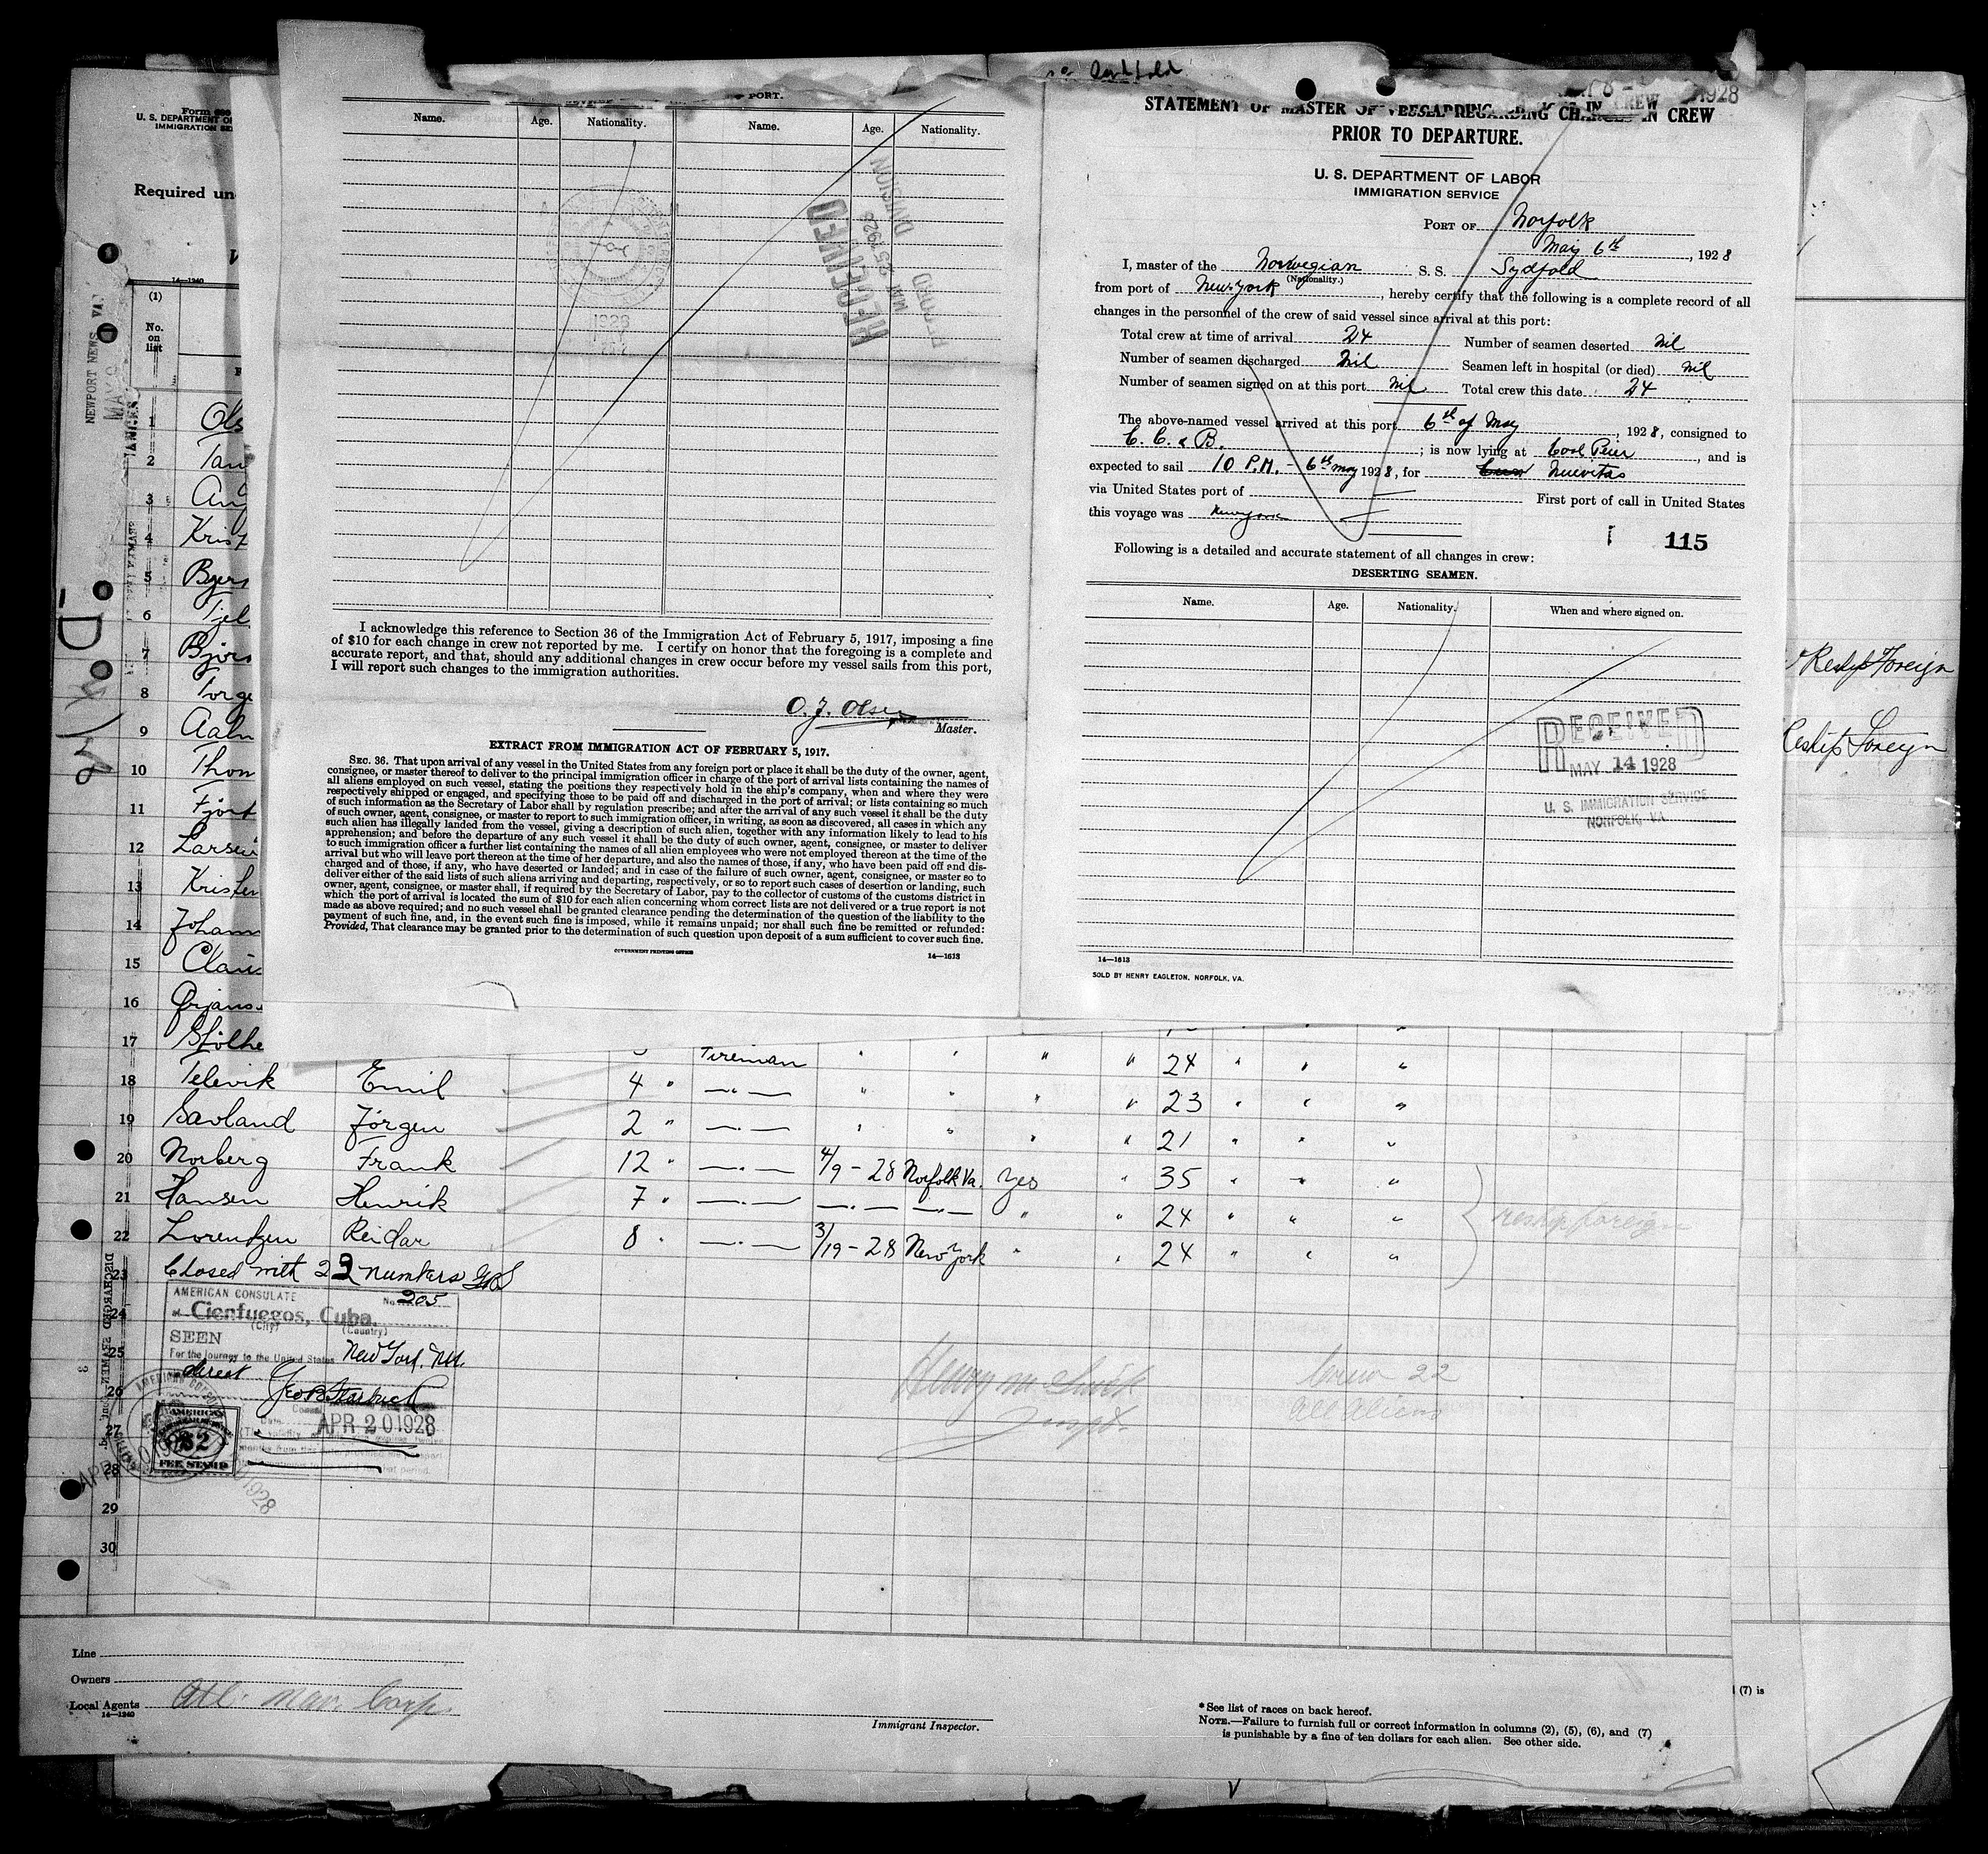 Form 689
U. S. DEPARTMENT OF
IMMIGRATION SE
Required un
14—1240
(1)
No.
on
list
NEWPORT NEWS, VA
1 Ols
2 Tan
3 An
4 Krist
5 Bjers
6 Tjel
7 Björs
8 Torge
9 Aaln
10 Thon
11 Fjört
12 Larsen
13 Kristen
14 Johann
15 Claus
16 Örjans
17 Stolhe
PORT.
Name. Age. Nationality. Name. Age. Nationality.
RECEIVED
MAY 25 1928
DIVISION
1928
I acknowledge this reference to Section 36 of the Immigration Act of February 5, 1917, imposing a fine
of $10 for each change in crew not reported by me. I certify on honor that the foregoing is a complete and
accurate report, and that, should any additional changes in crew occur before my vessel sails from this port,
I will report such changes to the immigration authorities.
O. J. Olsen
Master.
EXTRACT FROM IMMIGRATION ACT OF FEBRUARY 5, 1917.
SEC. 36. That upon arrival of any vessel in the United States from any foreign port or place it shall be the duty of the owner, agent,
consignee, or master thereof to deliver to the principal immigration officer in charge of the port of arrival lists containing the names of
all aliens employed on such vessel, stating the positions they respectively hold in the ship's company, when and where they were
respectively shipped or engaged, and specifying those to be paid off and discharged in the port of arrival; or lists containing so much
of such information as the Secretary of Labor shall by regulation prescribe; and after the arrival of any such vessel it shall be the duty
of such owner, agent, consignee, or master to report to such immigration officer, in writing, as soon as discovered, all cases in which any
such alien has illegally landed from the vessel, giving a description of such alien, together with any information likely to lead to his
apprehension; and before the departure of any such vessel it shall be the duty of such owner, agent, consignee, or master to deliver
to such immigration officer a further list containing the names of all alien employees who were not employed thereon at the time of the
arrival but who will leave port thereon at the time of her departure, and also the names of those, if any, who have been paid off and dis-
charged and of those, if any, who have deserted or landed; and in case of the failure of such owner, agent, consignee, or master so to
deliver either of the said lists of such aliens arriving and departing, respectively, or so to report such cases of desertion or landing, such
owner, agent, consignee, or master shall, if required by the Secretary of Labor, pay to the collector of customs of the customs district in
which the port of arrival is located the sum of $10 for each alien concerning whom correct lists are not delivered or a true report is not
made as above required; and no such vessel shall be granted clearance pending the determination of the question of the liability to the
payment of such fine, and, in the event such fine is imposed, while it remains unpaid; nor shall such fine be remitted or refunded:
Provided, That clearance may be granted prior to the determination of such question upon deposit of a sum sufficient to cover such fine.
GOVERNMENT PRINTING OFFICE
14—1613
1928
STATEMENT OF MASTER OF VESSEL REGARDING CHANGES IN CREW
PRIOR TO DEPARTURE.
U. S. DEPARTMENT OF LABOR
IMMIGRATION SERVICE
PORT OF Norfolk
May 6th, 1928
I, master of the Norwegian S. S. Sydfold
(Nationality.)
from port of New York, hereby certify that the following is a complete record of all
changes in the personnel of the crew of said vessel since arrival at this port:
Total crew at time of arrival 24 Number of seamen deserted nil
Number of seamen discharged Nil Seamen left in hospital (or died) nil
Number of seamen signed on at this port nil Total crew this date 24
The above-named vessel arrived at this port 6th of May, 1928, consigned to
C. C. & B.; is now lying at Coal Peier, and is
expected to sail 10 P.M. - 6th may 1928, for Nuevitas
via United States port of — First port of call in United States
this voyage was New York
115
Following is a detailed and accurate statement of all changes in crew:
DESERTING SEAMEN.
Name. Age. Nationality. When and where signed on.
RECEIVED
MAY 14 1928
U. S. IMMIGRATION SERVICE
NORFOLK, VA
14—1613
SOLD BY HENRY EAGLETON, NORFOLK, VA.
Reship Foreign
Reship Foreign
Fireman " " " " 24 " " "
18 Televik Emil 4 " —"— " " " " 23 " " "
19 Savland Jörgen 2 " —"— " " " " 21 " " "
20 Norberg Frank 12 " —"— 4/9-28 Norfolk Va. Yes " 35 " " "
21 Hansen Henrik 7 " —"— —"— —"— " " 24 " " "
reship foreign
22 Lorentzen Reidar 8 " —"— 3/19-28 New York " " 24 " " "
23 Closed with 22 numbers
AMERICAN CONSULATE
No. 205
at Cienfuegos, Cuba.
(City) (Country)
SEEN
For the journey to the United States New York, NY.
direct
APR 20 1928
AMERICAN
$2
FEE STAMP
24
25
26
27
28
29
30
DISCHARGED SEAMEN
Crew 22
all aliens
Line
Owners
Local Agents Atl. Nav. Corp.
14—1240
Immigrant Inspector.
* See list of races on back hereof.
NOTE.—Failure to furnish full or correct information in columns (2), (5), (6), and (7)
is punishable by a fine of ten dollars for each alien. See other side.
(7) is